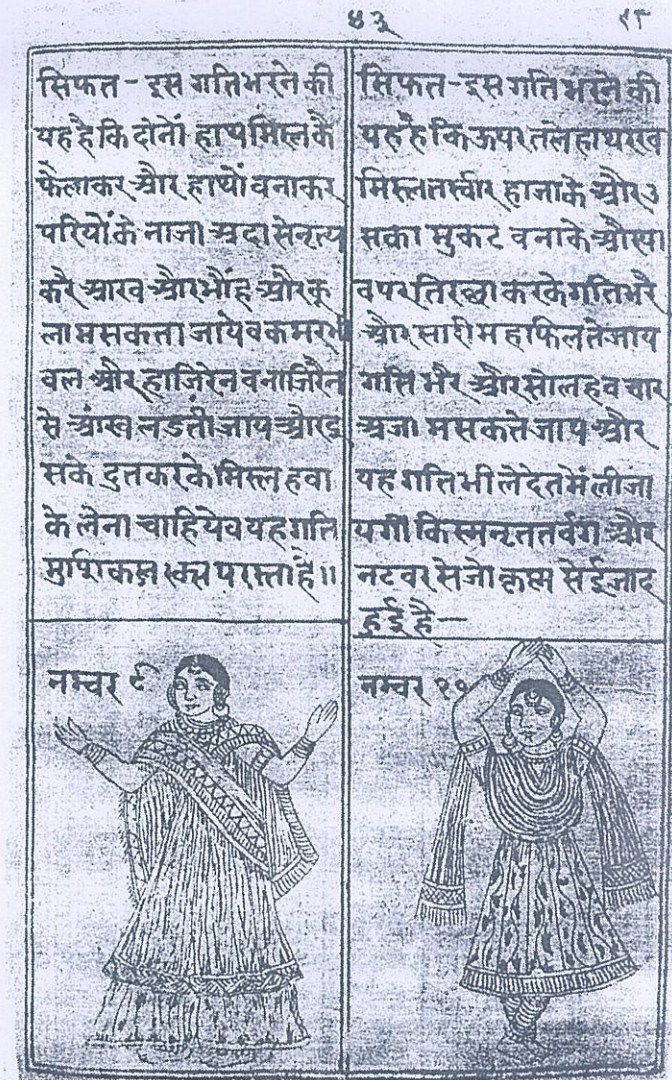 ४३
१८
सिफत - इस गतिभरने की
यह है कि दोनों हाथ मिस्ल के
फैलाकर और हाथों वनाकर
परियों के नाजा अदा से नृत्य
करै आख और भौंह और कू
ला मसकता जाये व कमर भी
वल और हाजिरेन व नाजिरैन
से आंख लडती जाय और इ
सके द्रुत करके मिस्ल हवा
के लेना चाहिये व यह गति
परस्ता है॥
नम्वर ९
सिफत - इस गति भरने की
यह है कि ऊपर तले हाथ रख
मिस्ल तस्वीर हाजा के और उ
सका मुकट वनाके औ ख्वा
व पर तिरछा करके गति भरै
और सारी महफिल ते जाय
गति भरै और सोलह व चार
अजा मसकते जाय और
यह गति भी लेदेत में ली जा
यगी किस्म नृतत वंग और
नटवर से जो कृष्ण से ईजाद
हुई है —
नम्वर १०